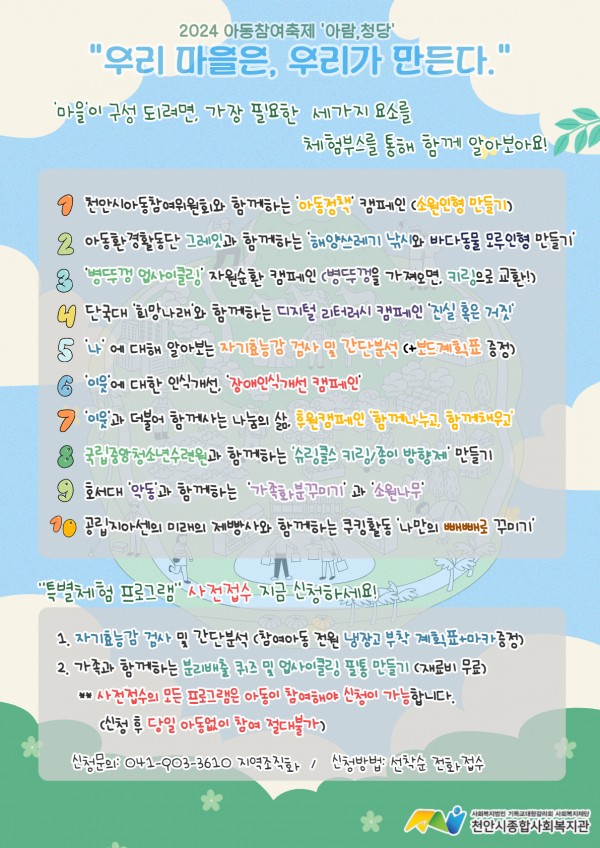 2024 아동참여축제 '아람,청당'
"우리 마을은, 우리가 만든다."
'마을'이 구성 되려면, 가장 필요한 세가지 요소를
체험부스를 통해 함께 알아보아요!
1 천안시아동참여위원회와 함께하는 '아동정책' 캠페인 (소원인형 만들기)
2 아동환경활동단 그레인과 함께하는 '해양쓰레기 낚시와 바다동물 모루인형 만들기'
3 '병뚜껑 업사이클링' 자원순환 캠페인 (병뚜껑을 가져오면, 키링으로 교환!)
4 단국대 '희망나래'와 함께하는 디지털 리터러시 캠페인 '진실 혹은 거짓'
5 '나' 에 대해 알아보는 자기효능감 검사 및 간단분석 (+보드계획표 증정)
6 '이웃'에 대한 인식개선, '장애인식개선 캠페인'
7 '이웃'과 더불어 함께사는 나눔의 삶, 후원캠페인 '함께나누고, 함께채우고'
8 국립중앙청소년수련원과 함께하는 '슈링클스 키링/종이 방향제' 만들기
9 호서대 '악동'과 함께하는 '가족화분꾸미기' 과 '소원나무'
10 공립지아센의 미래의 제빵사와 함께하는 쿠킹활동 '나만의 빼빼로 꾸미기'
"특별체험 프로그램" 사전접수 지금 신청하세요!
1. 자기효능감 검사 및 간단분석 (참여아동 전원 냉장고 부착 계획표+마카증정)
2. 가족과 함께하는 분리배출 퀴즈 및 업사이클링 필통 만들기 (재료비 무료)
** 사전접수의 모든 프로그램은 아동이 참여해야 신청이 가능합니다.
(신청 후 당일 아동없이 참여 절대불가)
신청문의: 041-903-3610 지역조직화 / 신청방법: 선착순 전화접수
사회복지법인 기독교대한감리회 사회복지재단
천안시종합사회복지관